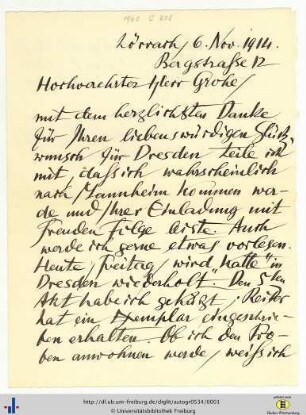 1960 C 808
Lörrach/ 6. Nov. 1914.
Bergstraße 12
Hochverehrter Herr Grohe/
mit dem herzlichsten Danke
für Ihren liebenswürdigen Glück-
wunsch für Dresden teile ich
mit, dass ich wahrscheinlich
nach Mannheim kommen wer-
de und Ihrer Einladung mit
Freuden Folge leiste. Auch
werde ich gerne etwas vorlesen.
Heute/ Freitag/ wird "Kätte" in
Dresden wiederholt. Den 5ten
Akt habe ich gekürzt; Reiter
hat ein Exemplar eingeschrie-
ben erhalten. Ob ich den Pro-
ben anwohnen werde/ weiß ich
http://dl.ub.uni-freiburg.de/diglit/autogr0534/0001
© Universitätsbibliothek Freiburg